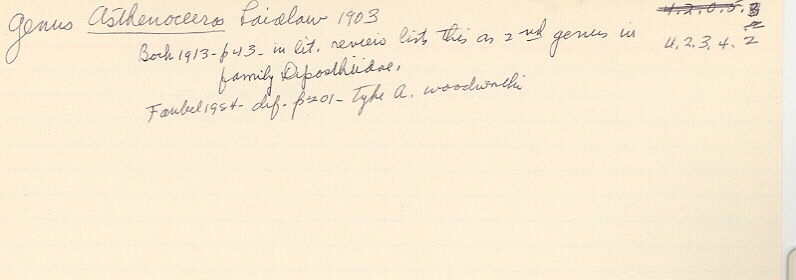 Genus Asthenoceros Laidlaw 1903
4.2.0.5.3
2
Bock 1913 - p43 - in lit. review lists this as 2nd genus in
4.2.3.4.2
family Diposthiidae.
Faubel 1984 - def. p 201 - Type A. woodworthi